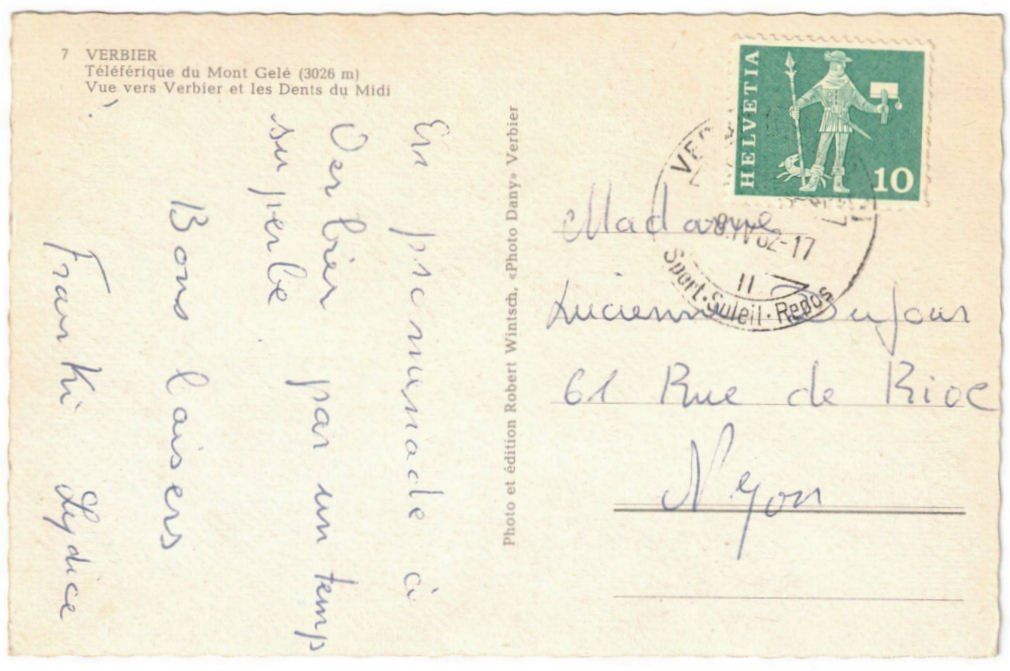 7 VERBIER
Téléférique du Mont Gelé (3026 m)
Vue vers Verbier et les Dents du Midi
En promenade à
Verbier par un temp
superbe!
Bons baisers
Franki Lydice
Photo et édition Robert Wintsch, «Photo Dany» Verbier
HELVETIA
10
VER
IV 62-17
II
Sport·Suleil·Repos
Madame
Lucienne Dufour
61 Rue de Rive
Nyon